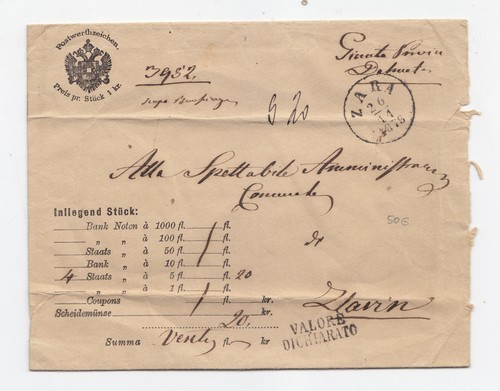 Postwerthzeichen.
Preis pr. Stück 1 kr.
3952
Giunta Provin
Dalmata
ZARA
26
11
g 20
Alla Spettabile Amministraz
Comunale
di
50€
Inliegend Stück:
Bank Noten à 1000 fl. fl.
„ „ à 100 fl. fl.
Staats „ à 50 fl. fl.
Bank „ à 10 fl. fl.
4 Staats „ à 5 fl. 20
„ „ à 1 fl. fl.
Coupons kr.
Scheidemünze kr.
20.
Summa Venti fl. kr.
Slavin
VALORE
DICHIARATO